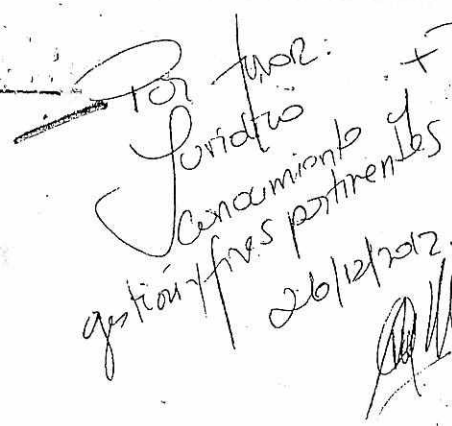 Por favor:
Jurídico
conocimiento y
gestión y fines pertinentes
26/12/2012.